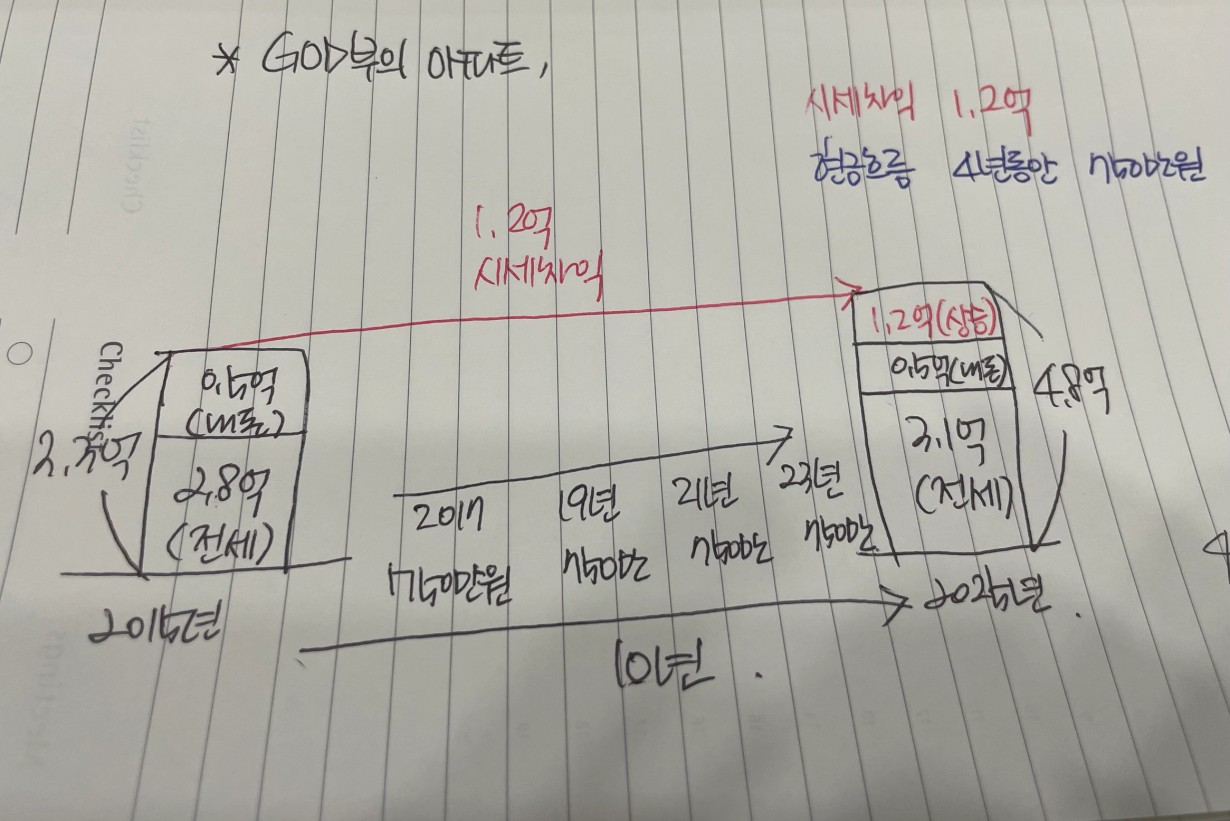 * GOD부의 아파트,
시세차익 1.2억
현금흐름 4년동안 7500만원
1.2억
시세차익
1.2억(상승)
0.5억(대출)
3.1억
(전세)
4.8억
Checklist
0.5억
(대출)
2.8억
(전세)
2017 19년 21년 23년
7500만 7500만 7500만
2015년
2025년.
10년.
Checklist